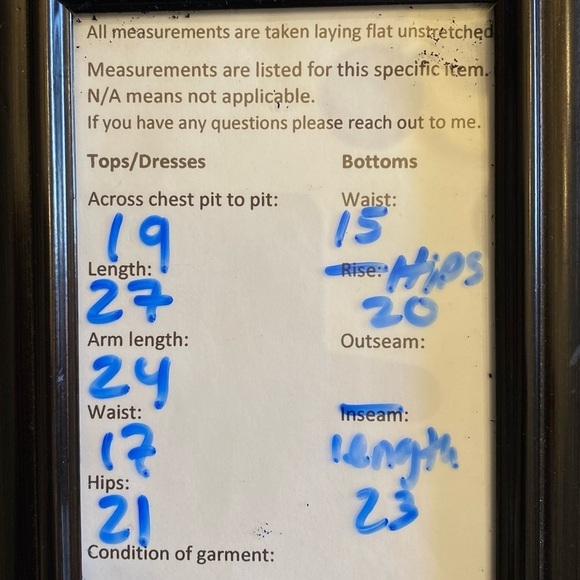 All measurements are taken laying flat unstretched
Measurements are listed for this specific item.
N/A means not applicable.
If you have any questions please reach out to me.
Tops/Dresses
Across chest pit to pit:
19
Length:
27
Arm length:
24
Waist:
17
Hips:
21
Condition of garment:
Bottoms
Waist:
15
Rise: Hips
20
Outseam:
Inseam:
length
23